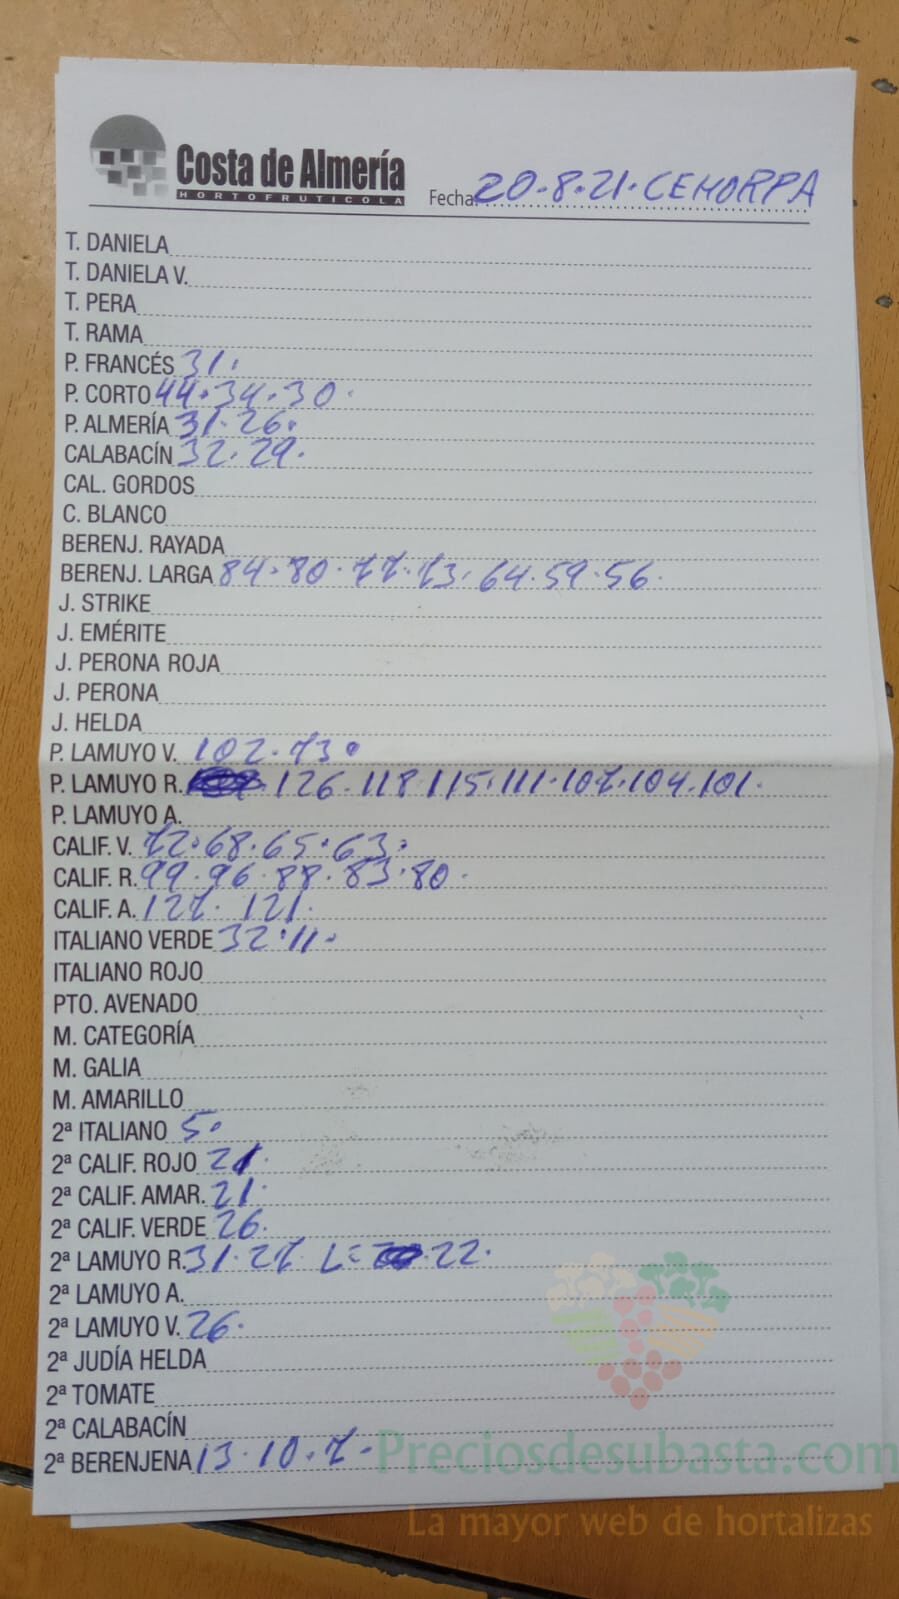 Costa de Almería
HORTOFRUTICOLA
Fecha 20.8.21. CEHORPA
T. DANIELA
T. DANIELA V.
T. PERA
T. RAMA
P. FRANCÉS 31.
P. CORTO 44.34.30.
P. ALMERÍA 31.26.
CALABACÍN 32.29.
CAL. GORDOS
C. BLANCO
BERENJ. RAYADA
BERENJ. LARGA 84.80.77.73.64.59.56.
J. STRIKE
J. EMÉRITE
J. PERONA ROJA
J. PERONA
J. HELDA
P. LAMUYO V. 102.73.
P. LAMUYO R. 126.118.115.111.107.104.101.
P. LAMUYO A.
CALIF. V. 72.68.65.63.
CALIF. R. 99.96.88.83.80.
CALIF. A. 127. 121.
ITALIANO VERDE 32.11.
ITALIANO ROJO
PTO. AVENADO
M. CATEGORÍA
M. GALIA
M. AMARILLO
2ª ITALIANO 5.
2ª CALIF. ROJO 21.
2ª CALIF. AMAR. 21.
2ª CALIF. VERDE 26.
2ª LAMUYO R. 31.27 L= 22.
2ª LAMUYO A.
2ª LAMUYO V. 26.
2ª JUDÍA HELDA
2ª TOMATE
2ª CALABACÍN
2ª BERENJENA 13.10.7.
Preciosdesubasta.com
La mayor web de hortalizas